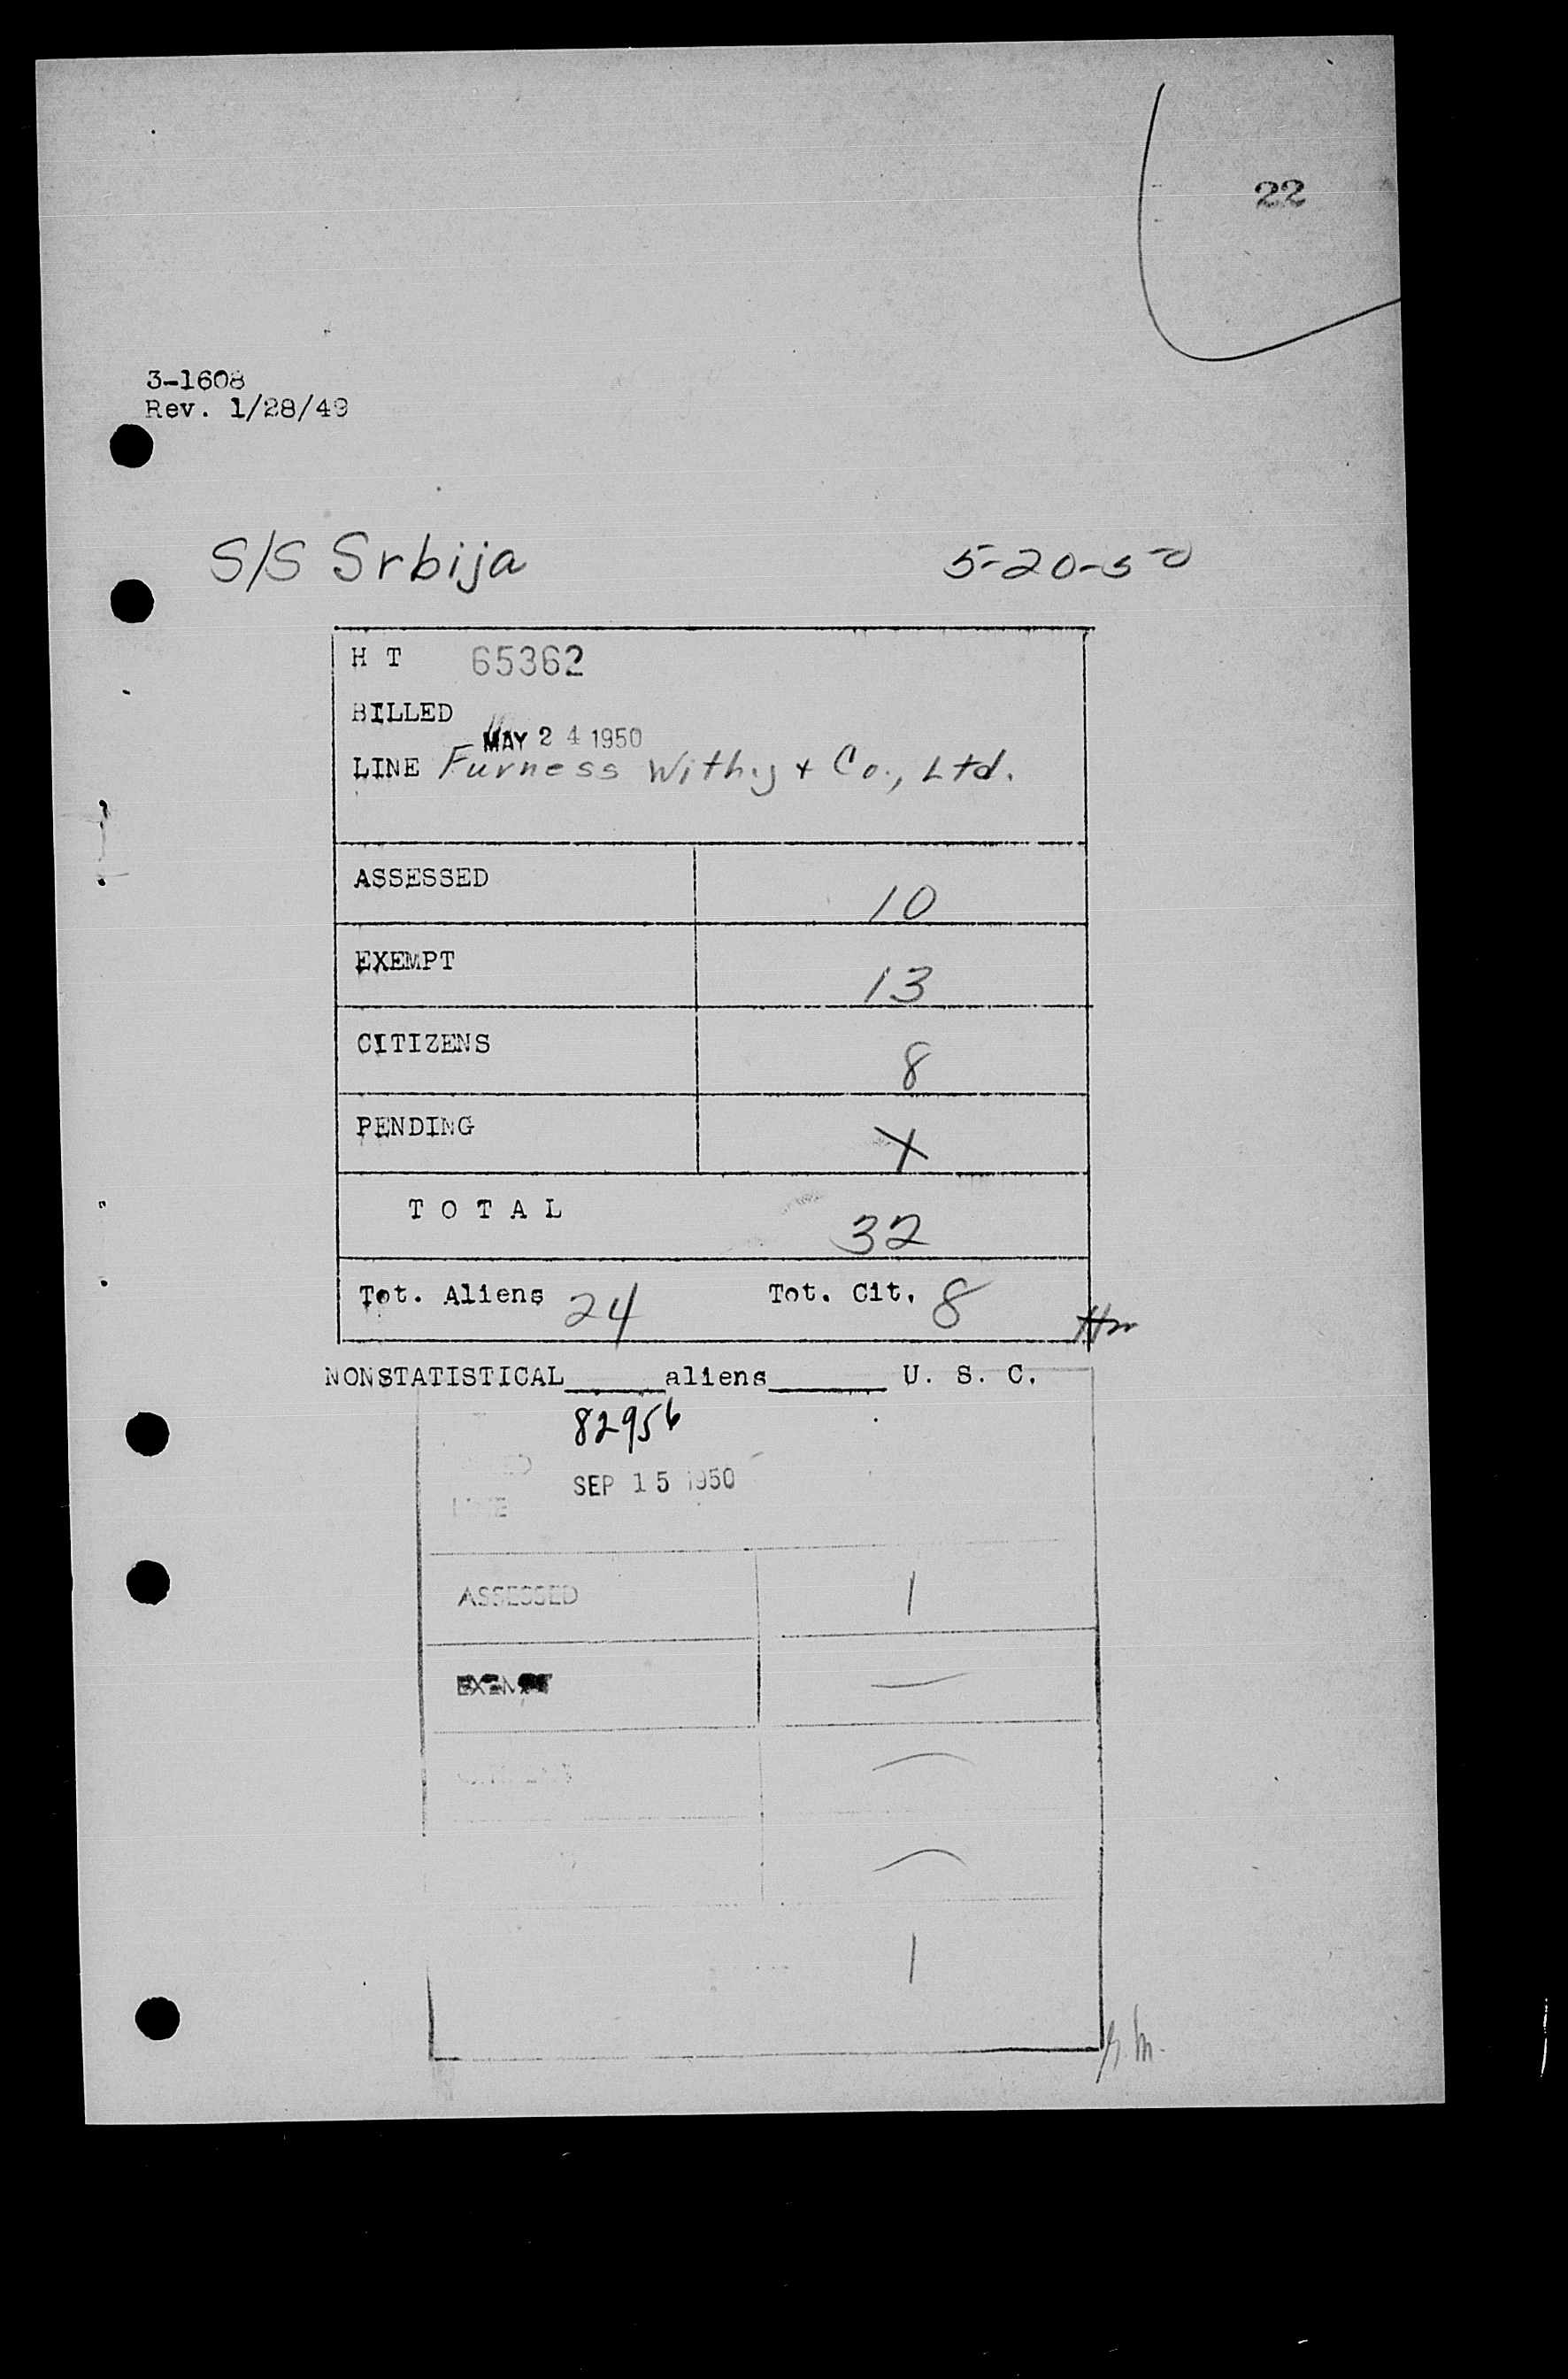 22
3-1608
Rev. 1/28/49
S/S Srbija 5-20-50
H T 65362
BILLED
MAY 24 1950
LINE Furness Withy + Co., Ltd.
ASSESSED 10
EXEMPT 13
CITIZENS 8
PENDING X
T O T A L 32
Tot. Aliens 24 Tot. Cit. 8
NONSTATISTICAL______aliens_______ U. S. C.
82956
SEP 15 1950
LINE
ASSESSED 1
EXEMPT —
—
—
1